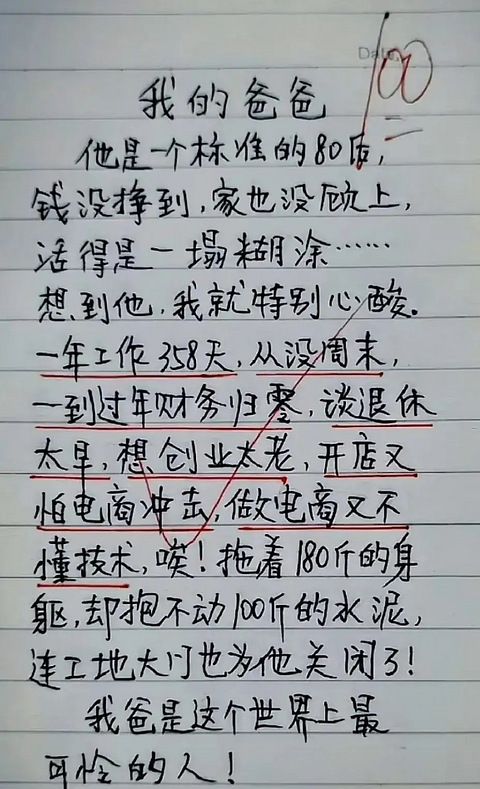 Date.
100
我的爸爸
他是一个标准的80后,
钱没挣到,家也没顾上,
活得是一塌糊涂……
想到他,我就特别心酸。
一年工作358天,从没周末,
一到过年财务归零,谈退休
太早,想创业太老,开店又
怕电商冲击,做电商又不
懂技术,唉!拖着180斤的身
躯,却抱不动100斤的水泥,
连工地大门也为他关闭了!
我爸是这个世界上最
可怜的人!